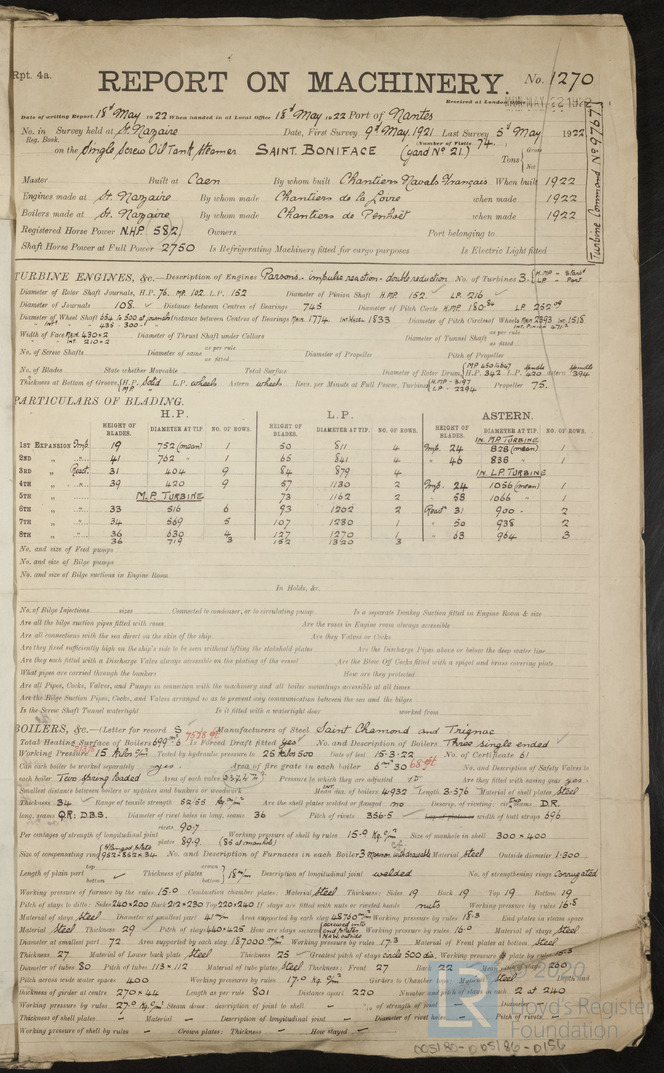 Rpt. 4a.
REPORT ON MACHINERY.
No. 1270
Received at London
Date of writing Report 18th May 1922 When handed in at Local Office 18th May 1922 Port of Nantes
No. in Survey held at St. Nazaire Date, First Survey 9th May, 1921 Last Survey 5th May 1922
Reg. Book.
(Number of Visits 74)
on the Single Screw Oil Tank Steamer SAINT BONIFACE (yard No 21.)
Tons Gross
Net
Master Built at Caen By whom built Chantiers Navals Français When built 1922
Engines made at St. Nazaire By whom made Chantiers de la Loire when made 1922
Boilers made at St. Nazaire By whom made Chantiers de Penhoët when made 1922
Registered Horse Power N.H.P. 582 Owners Port belonging to
Shaft Horse Power at Full Power 2750 Is Refrigerating Machinery fitted for cargo purposes Is Electric Light fitted
TURBINE ENGINES, &c.—Description of Engines Parsons. impulse reaction - double reduction No. of Turbines 3.
Diameter of Rotor Shaft Journals, H.P. 76. MP. 102 L.P. 152 Diameter of Pinion Shaft H.M.P. 152 L.P. 216
Diameter of Journals 108. Distance between Centres of Bearings 745 Diameter of Pitch Circle
Distance between Centres of Bearings Main 1774 Int. Wheel 1833 Diameter of Pitch Circle of Wheels Main 2393 Int. 1518
Width of Face Main 430×2 Diameter of Thrust Shaft under Collars Diameter of Tunnel Shaft as per rule
Int. 210×2 as fitted
No. of Screw Shafts Diameter of same as per rule Diameter of Propeller Pitch of Propeller
as fitted
No. of Blades State whether Moveable Total Surface Diameter of Rotor Drum, H.P. 342 L.P. 420 Astern 394
Thickness at Bottom of Groove, H.P. Solid L.P. wheels Astern wheels Revs. per Minute at Full Power, Turbine H.M.P. - 3197 Propeller 75.
L.P. - 2294
PARTICULARS OF BLADING.
H.P. L.P. ASTERN.
HEIGHT OF BLADES. DIAMETER AT TIP. NO. OF ROWS. HEIGHT OF BLADES. DIAMETER AT TIP. NO. OF ROWS. HEIGHT OF BLADES. DIAMETER AT TIP. NO. OF ROWS.
IN. M.P TURBINE
1ST EXPANSION Imp. 19 752 (mean) 1 50 811 4 Imp. 24 828 (mean) 1
2ND „ 41 762 1 65 841 4 „ 46 838 1
3RD „ React. 31 404 9 84 879 4 IN. L.P. TURBINE
4TH „ 39 420 9 57 1130 2 Imp. 24 1056 (mean) 1
5TH „ M.P. TURBINE 73 1162 2 „ 58 1066 1
6TH „ 33 516 6 93 1202 2 React 31 900 2
7TH „ 34 569 5 107 1230 1 „ 50 938 2
8TH „ 36 630 4 127 1270 1 „ 63 964 3
36 719 3 152 1320 3
No. and size of Feed pumps
No. and size of Bilge pumps
No. and size of Bilge suctions in Engine Room
In Holds, &c.
No. of Bilge Injections sizes Connected to condenser, or to circulating pump Is a separate Donkey Suction fitted in Engine Room & size
Are all the bilge suction pipes fitted with roses Are the roses in Engine room always accessible
Are all connections with the sea direct on the skin of the ship Are they Valves or Cocks
Are they fixed sufficiently high on the ship's side to be seen without lifting the stokehold plates Are the Discharge Pipes above or below the deep water line
Are they each fitted with a Discharge Valve always accessible on the plating of the vessel Are the Blow Off Cocks fitted with a spigot and brass covering plate
What pipes are carried through the bunkers How are they protected
Are all Pipes, Cocks, Valves, and Pumps in connection with the machinery and all boiler mountings accessible at all times
Are the Bilge Suction Pipes, Cocks, and Valves arranged so as to prevent any communication between the sea and the bilges
Is the Screw Shaft Tunnel watertight Is it fitted with a watertight door worked from
BOILERS, &c.—(Letter for record S) Manufacturers of Steel Saint Chamond and Trignac
Total Heating Surface of Boilers Is Forced Draft fitted yes No. and Description of Boilers Three single ended
Working Pressure 15 Kilos Tested by hydraulic pressure to 25 Kilos Date of test 15-3-22 No. of Certificate 61
Can each boiler be worked separately yes. Area of fire grate in each boiler No. and Description of Safety Valves to
each boiler Two Spring loaded Area of each valve Pressure to which they are adjusted Are they fitted with easing gear yes.
Smallest distance between boilers or uptakes and bunkers or woodwork Mean dia. of boilers 4.932 Length 3.576 Material of shell plates Steel
Thickness 34 Range of tensile strength 52/55 Are the shell plates welded or flanged no Descrip. of riveting: cir. seams D.R.
long. seams Q.R: D.B.S. Diameter of rivet holes in long. seams 36 Pitch of rivets 356.5 width of butt straps 696
Per centages of strength of longitudinal joint rivets 90.7 Working pressure of shell by rules 15.9 Size of manhole in shell 300 × 400
plates 89.9 (85 at manhole)
Size of compensating ring No. and Description of Furnaces in each Boiler 3 Morison withdrawable Material Steel Outside diameter 1.300
Length of plain part top Thickness of plates crown 18 Description of longitudinal joint welded No. of strengthening rings corrugated
bottom bottom
Working pressure of furnace by the rules 15.0 Combustion chamber plates: Material Steel Thickness: Sides 19 Back 19 Top 19 Bottom 19
Pitch of stays to ditto: Sides 240×200 Back 212×230 Top 220×240 If stays are fitted with nuts or riveted heads nuts Working pressure by rules 16.8
Material of stays Steel Diameter at smallest part 41 Area supported by each stay 48760 Working pressure by rules 18.3 End plates in steam space
Material Steel Thickness 29 Pitch of stays 440×425 How are stays secured Working pressure by rules 16.0 Material of stays Steel
Diameter at smallest part 72 Area supported by each stay 187000 Working pressure by rules 17.3 Material of Front plates at bottom Steel
Thickness 27 Material of Lower back plate Steel Thickness 25 Greatest pitch of stays circle 500 dia. Working pressure of plate by rules 15.3
Diameter of tubes 80 Pitch of tubes 113 × 112 Material of tube plates Steel Thickness: Front 27 Back 22 Mean pitch of stays 260
Pitch across wide water spaces 400 Working pressures by rules 17.0 Girders to Chamber Steel
thickness of girder at centre 270 × 44 Length as per rule 801 Distance apart 220 Number and pitch of stays in each 2 at 240
Working pressure by rules 27.0 Steam dome: description of joint to shell % of strength of joint Diameter
Thickness of shell plates Material Description of longitudinal joint Diameter of rivet holes Pitch of rivets
Working pressure of shell by rules Crown plates: Thickness How stayed
© 2020
Lloyd's Register
Foundation
005180-005186-0156